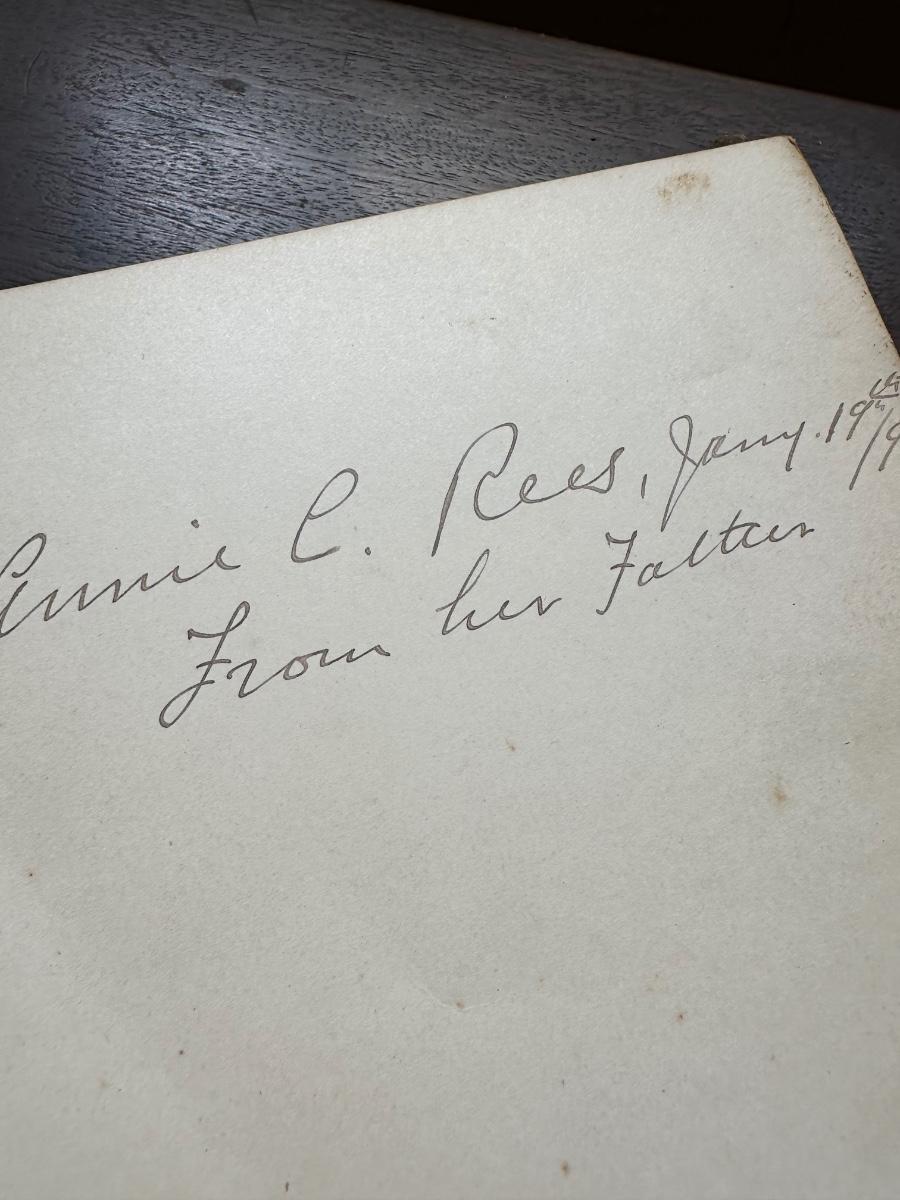 Annie C. Rees, Jany. 19th/9
From her Father